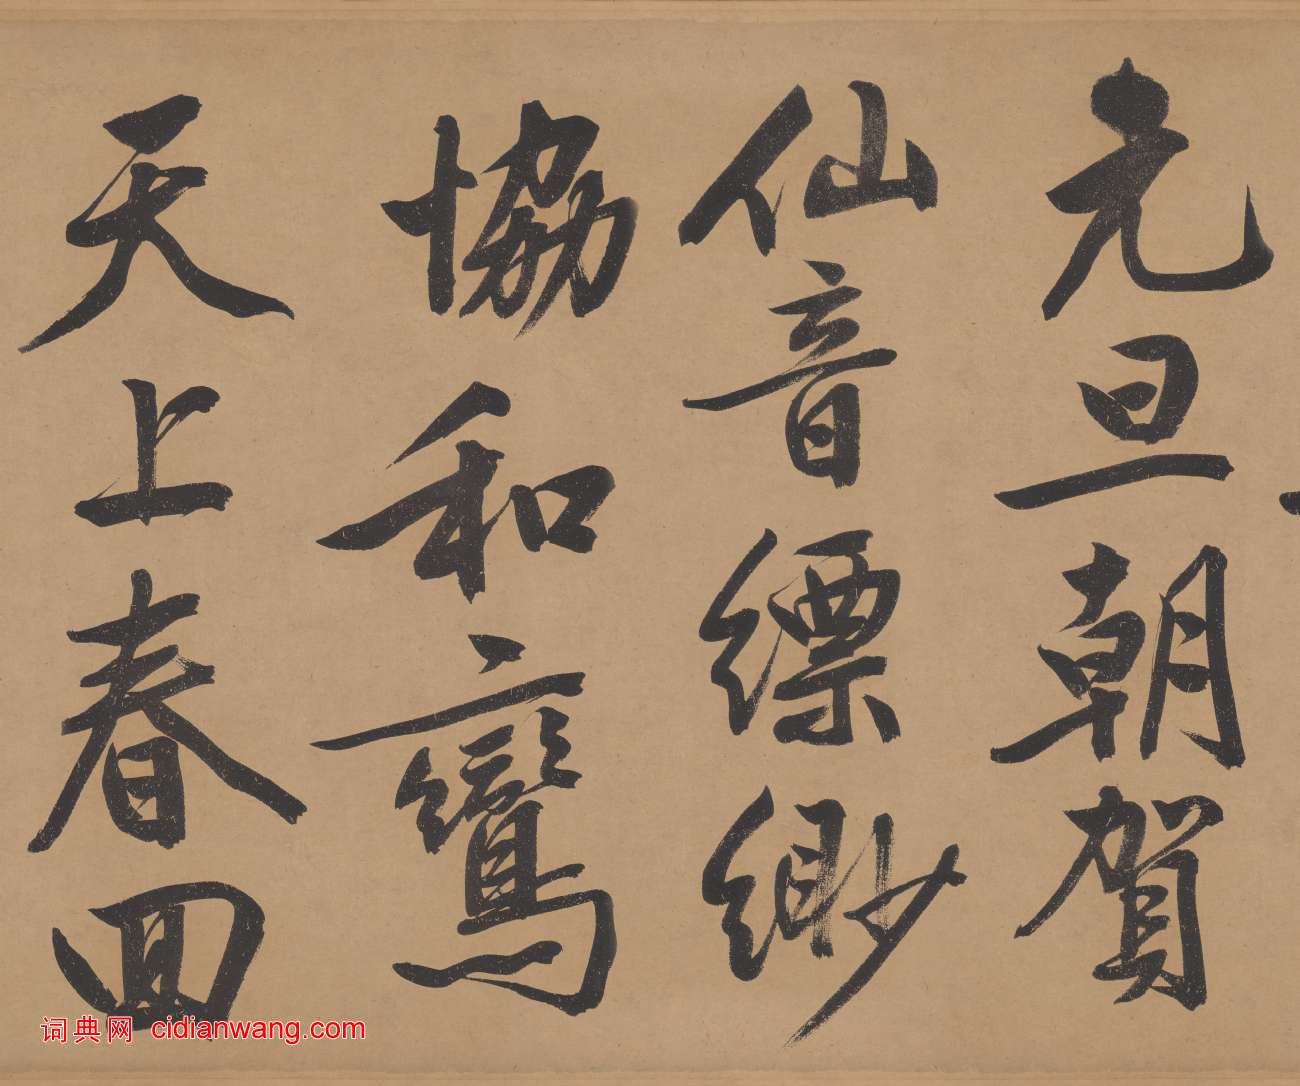 元旦朝賀
仙音縹緲
協和鸞
天上春回
词典网 cidianwang.com